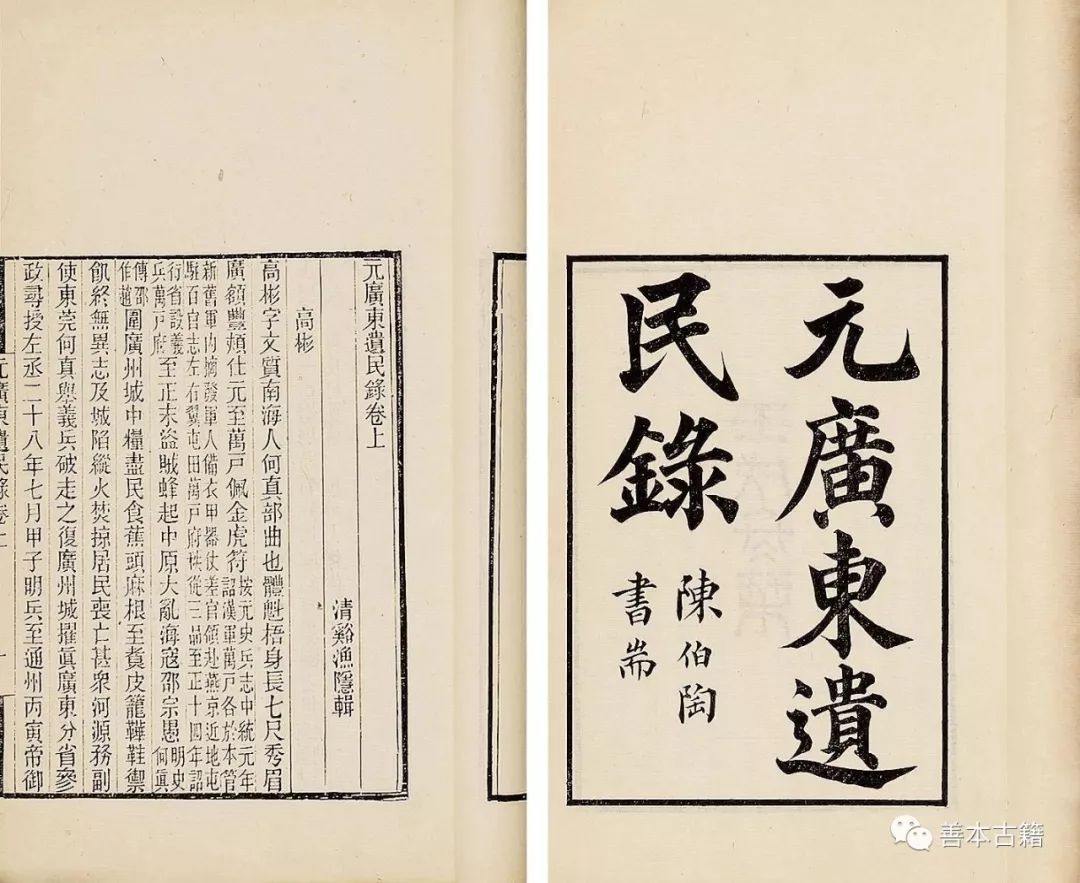 元廣東遺
民錄
陳伯陶
書耑
元廣東遺民錄卷上
清谿漁隱輯
高彬
高彬字文質南海人何真部曲也體魁梧身長七尺秀眉
廣額豐頰仕元至萬戶佩金虎符按元史兵志中統元年詔漢軍萬戶各於本管
新舊軍內摘發軍人備衣甲器仗差官領赴燕京近地屯
駐百官志左右翼屯田萬戶府秩從三品至正十四年詔
行省設義兵萬戶府至正末盜賊蜂起中原大亂海寇邵宗愚明史何眞
傳邵作趙圍廣州城中糧盡民食蕉頭麻根至煑皮籠鞾鞋禦
飢終無異志及城陷縱火焚掠居民喪亡甚衆河源務副
使東莞何真舉義兵破走之復廣州城擢眞廣東分省參
政尋授左丞二十八年七月甲子明兵至通州丙寅帝御
元廣東遺民錄卷上
一
善本古籍